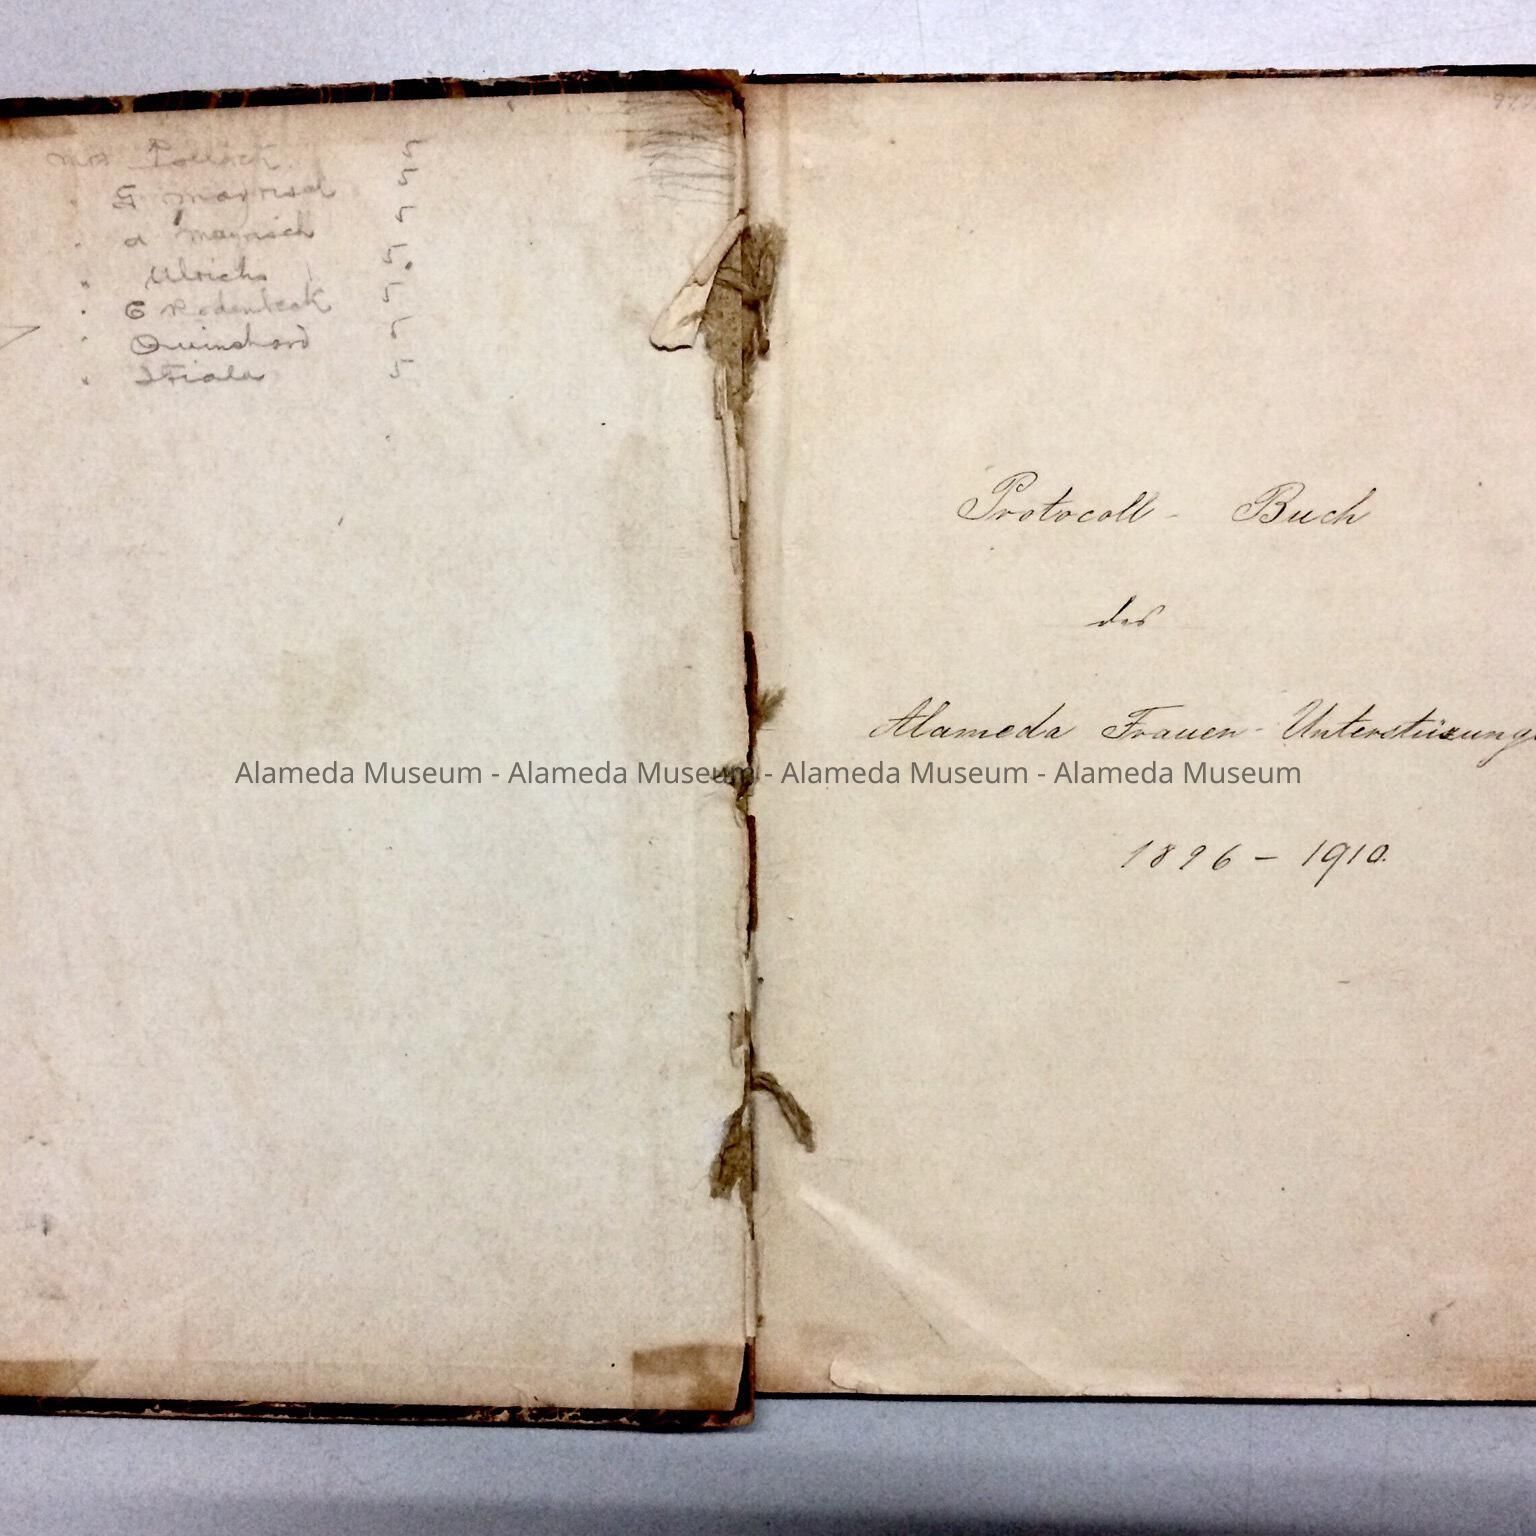 Mrs Pollack 5
" G Mayrisch 5
" A Mayrisch 5
" Ulrichs 5
" G Rodenbeck 5
" Quinchard 5
" 5
Protocoll - Buch
des
Alameda Frauen - Unterstüzungs
1896 - 1910.
Alameda Museum - Alameda Museum - Alameda Museum - Alameda Museum